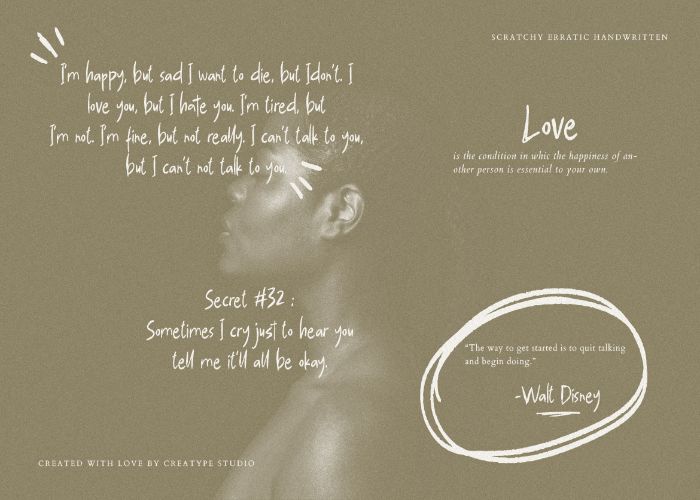 SCRATCHY ERRATIC HANDWRITTEN
I'm happy, but sad I want to die, but Idon't. I
love you, but I hate you. I'm tired, but
I'm not. I'm fine, but not really. I can't talk to you,
but I can't not talk to you.
Love
is the condition in whic the happiness of an-
other person is essential to your own.
Secret #32 :
Sometimes I cry just to hear you
tell me it'll all be okay.
"The way to get started is to quit talking
and begin doing."
-Walt Disney
CREATED WITH LOVE BY CREATYPE STUDIO